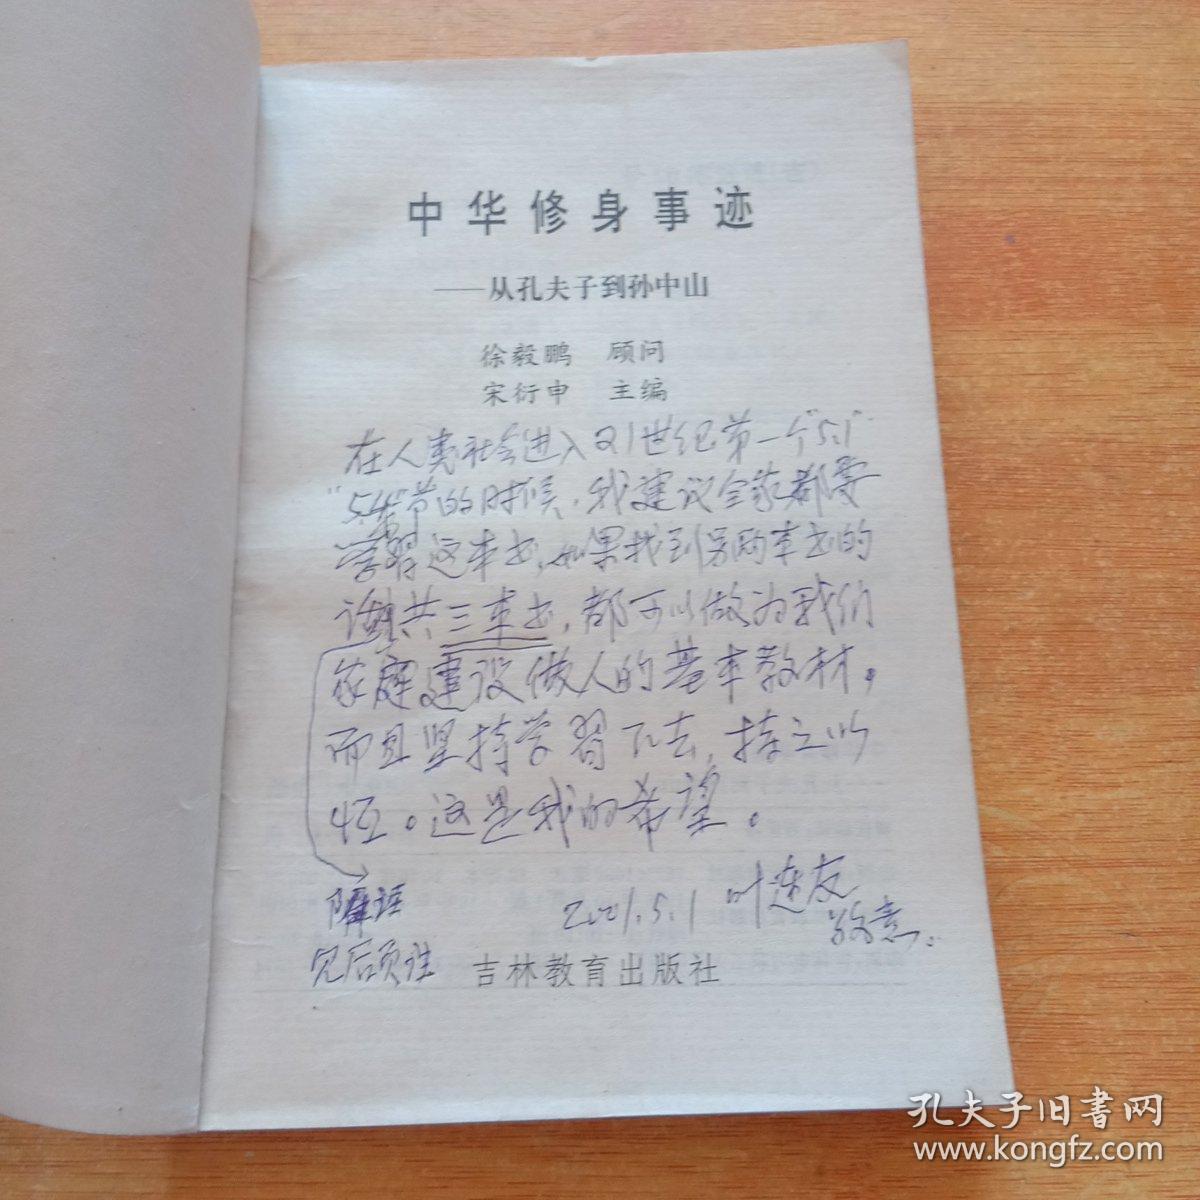 中华修身事迹
——从孔夫子到孙中山
徐毅鹏 顾问
宋衍申 主编
在人类社会进入21世纪第一个"5.1"
"5.4"节的时候，我建议全家都要
学习这本书，如果找到另两本书的
话共三本书，都可以做为我们
家庭建设做人的基本教材，
而且坚持学习下去，持之以
恒。这是我的希望。
2001.5.1 叶连友
敬意。
见后页注
吉林教育出版社
孔夫子旧書网
www.kongfz.com